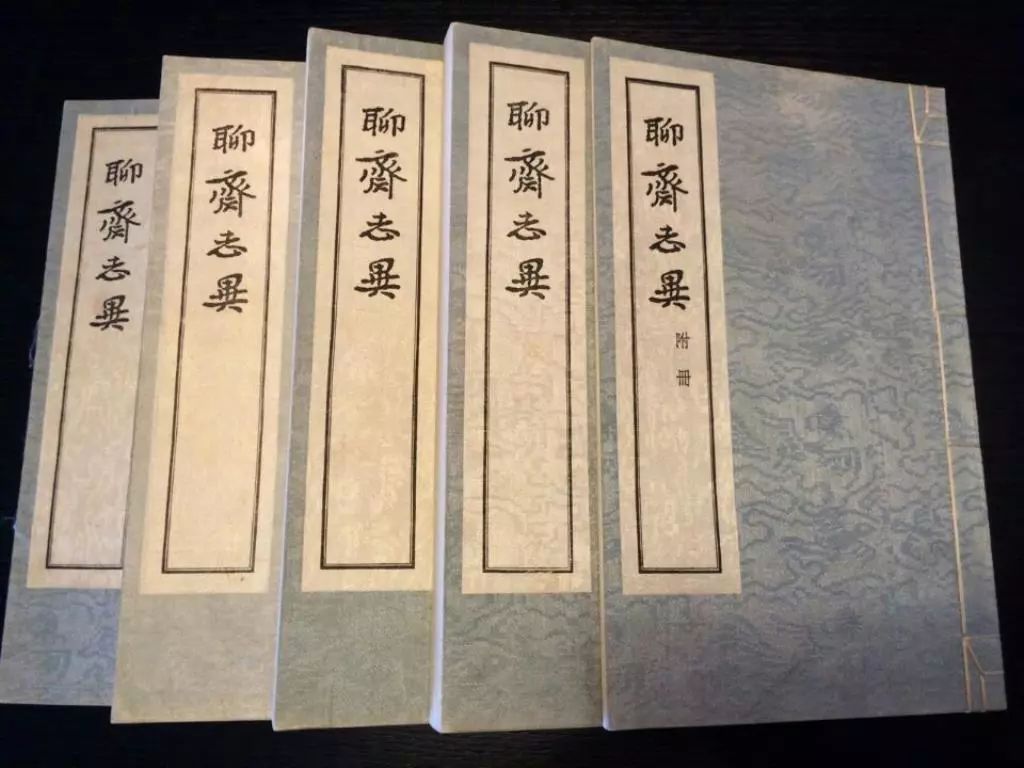 聊齋志異
聊齋志異
聊齋志異
聊齋志異
聊齋志異